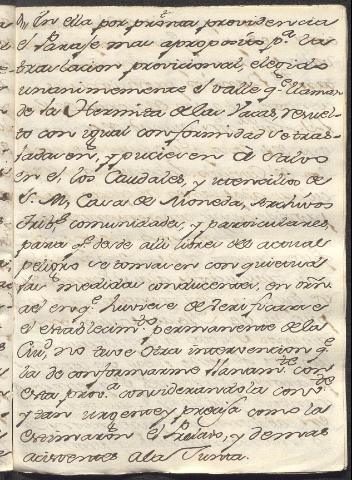 En ella por pronta providencia
el Parage mas aproposito p.a la
traslacion provicional, elegido
unanimemente el valle q.e llaman
de la Hermita de las Vacas, resuel-
to con igual conformidad se tras-
ladacen, y pucieven à salvo
en el los Caudales, y utencilios de
S. M, Casa de Moneda, Archivos
Trib.s comunidades, y particulares
para q.e desde alli libres del actual
peligro se tomacen con quietud
las medidas conducentes, en orn.
al en q.e huviere de verificarce
el establecim.to permanente de la
Ciu.d, no tuve otra intervencion q.e
la de conformarme llanam.te con
esta prov.a considerandola conv.te
y tan urgente y precisa como la
estimaron el Prelado, y demas
acistentes a la Junta.